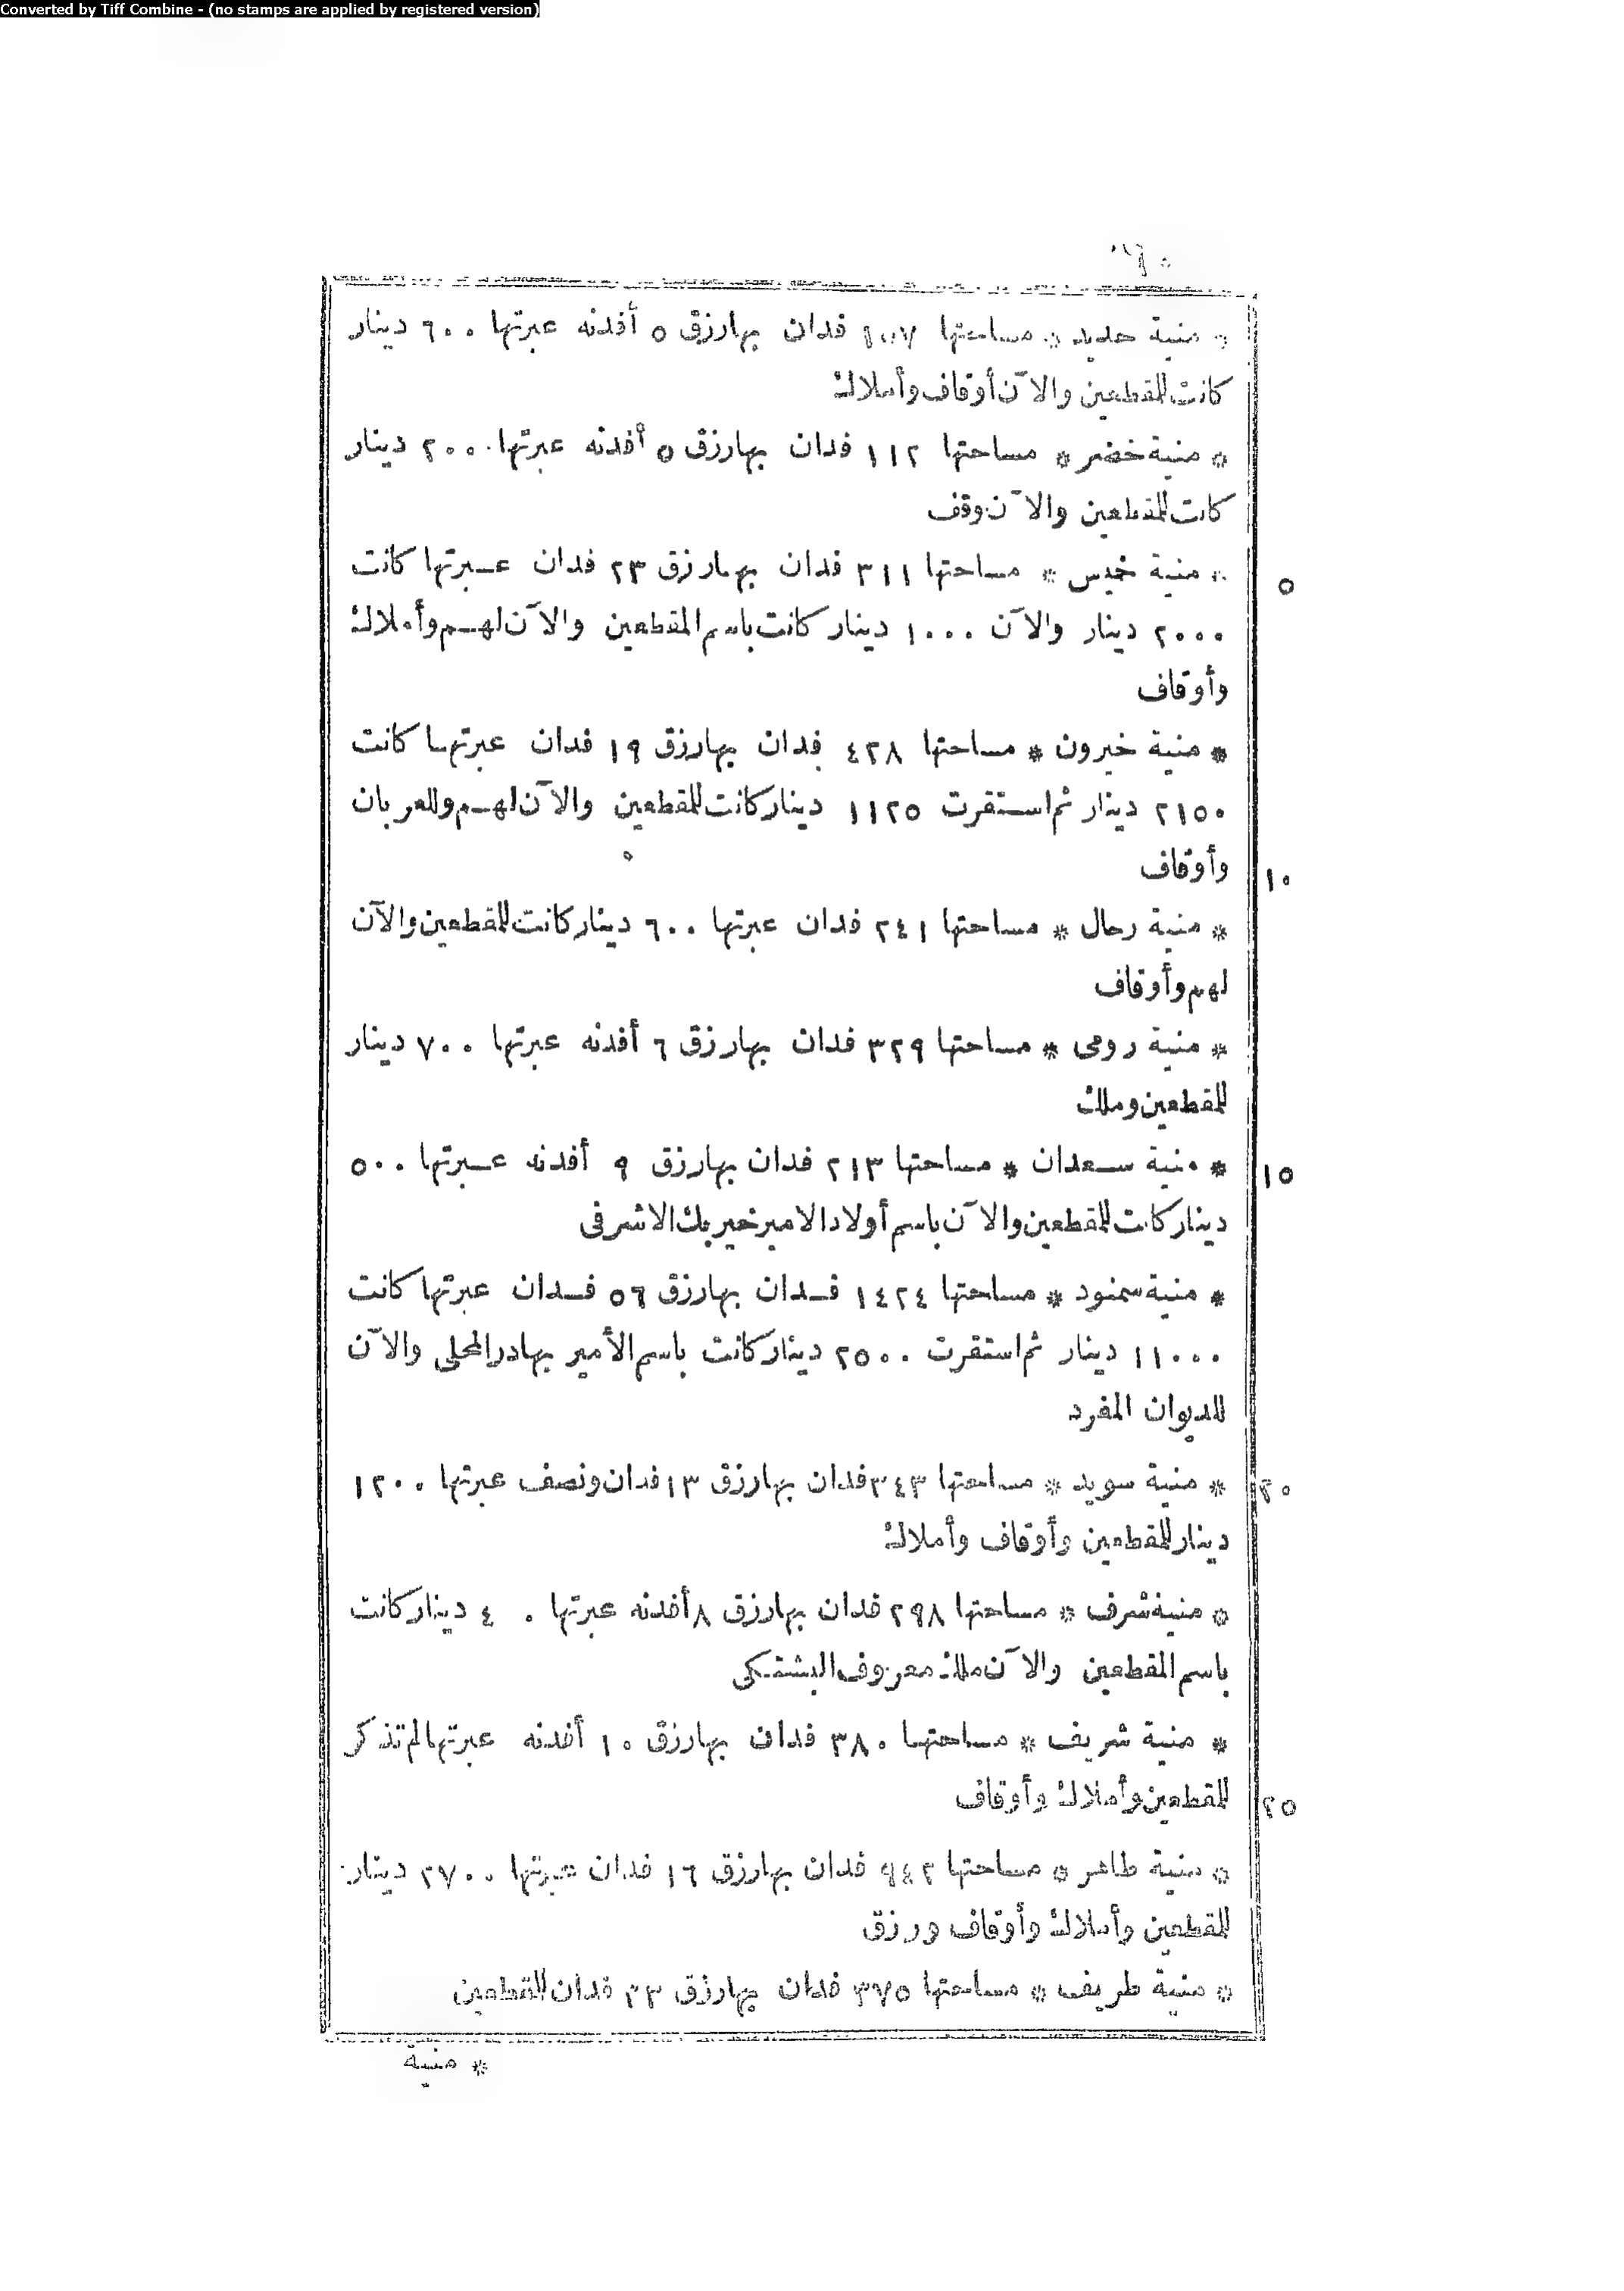 Converted by Tiff Combine - (no stamps are applied by registered version)
* منية حديد * مساحتها فدان بهارزق ٥ أفدنه عبرتها ٦٠٠ دينار
كانت للمقطعين والآن أوقاف وأملاك
* منية خضر * مساحتها ١١٢ فدان بهارزق ٥ أفدنه عبرتها ٢٠٠٠ دينار
كانت للمقطعين والآن وقف
* منية خميس * مساحتها ٣١١ فدان بهارزق ٢٣ فدان عبرتها كانت
٢٠٠٠ دينار والآن ١٠٠٠ دينار كانت باسم المقطعين والآن لهم وأملاك
وأوقاف
٥
* منية خيرون * مساحتها ٤٢٨ فدان بهارزق ١٩ فدان عبرتها كانت
٢١٥٠ دينار ثم استقرت ١١٢٥ دينار كانت للمقطعين والآن لهم وللعربان
وأوقاف
١٠
* منية رحال * مساحتها ٢٤١ فدان عبرتها ٦٠٠ دينار كانت للمقطعين والآن
لهم وأوقاف
* منية رومى * مساحتها ٣٢٩ فدان بهارزق ٦ أفدنه عبرتها ٧٠٠ دينار
للمقطعين وملك
* منية سعدان * مساحتها ٢١٣ فدان بهارزق ٩ أفدنه عبرتها ٥٠٠
١٥
دينار كانت للمقطعين والآن باسم أولاد الامير خير بك الاشرفى
* منية سمنود * مساحتها ١٤٢٤ فدان بهارزق ٥٦ فدان عبرتها كانت
١١٠٠٠ دينار ثم استقرت ٢٥٠٠ دينار كانت باسم الأمير بهادر المحلى والآن
للديوان المفرد
* منية سويد * مساحتها ٣٤٣ فدان بهارزق ١٣ فدان ونصف عبرتها ١٢٠٠
٢٠
دينار للمقطعين وأوقاف وأملاك
* منية شرف * مساحتها ٢٩٨ فدان بهارزق ٨ أفدنه عبرتها دينار كانت
باسم المقطعين والآن ملك معروف البشتكى
* منية شريف * مساحتها ٣٨٠ فدان بهارزق ١٠ أفدنه عبرتها لم تذكر
للمقطعين وأملاك وأوقاف
٢٥
* منية طاهر * مساحتها ٩٤٢ فدان بهارزق ١٦ فدان عبرتها ٢٧٠٠ دينار
للمقطعين وأملاك وأوقاف ورزق
* منية طريف * مساحتها ٣٧٥ فدان بهارزق ٣٣ فدان للمقطعين
* منية